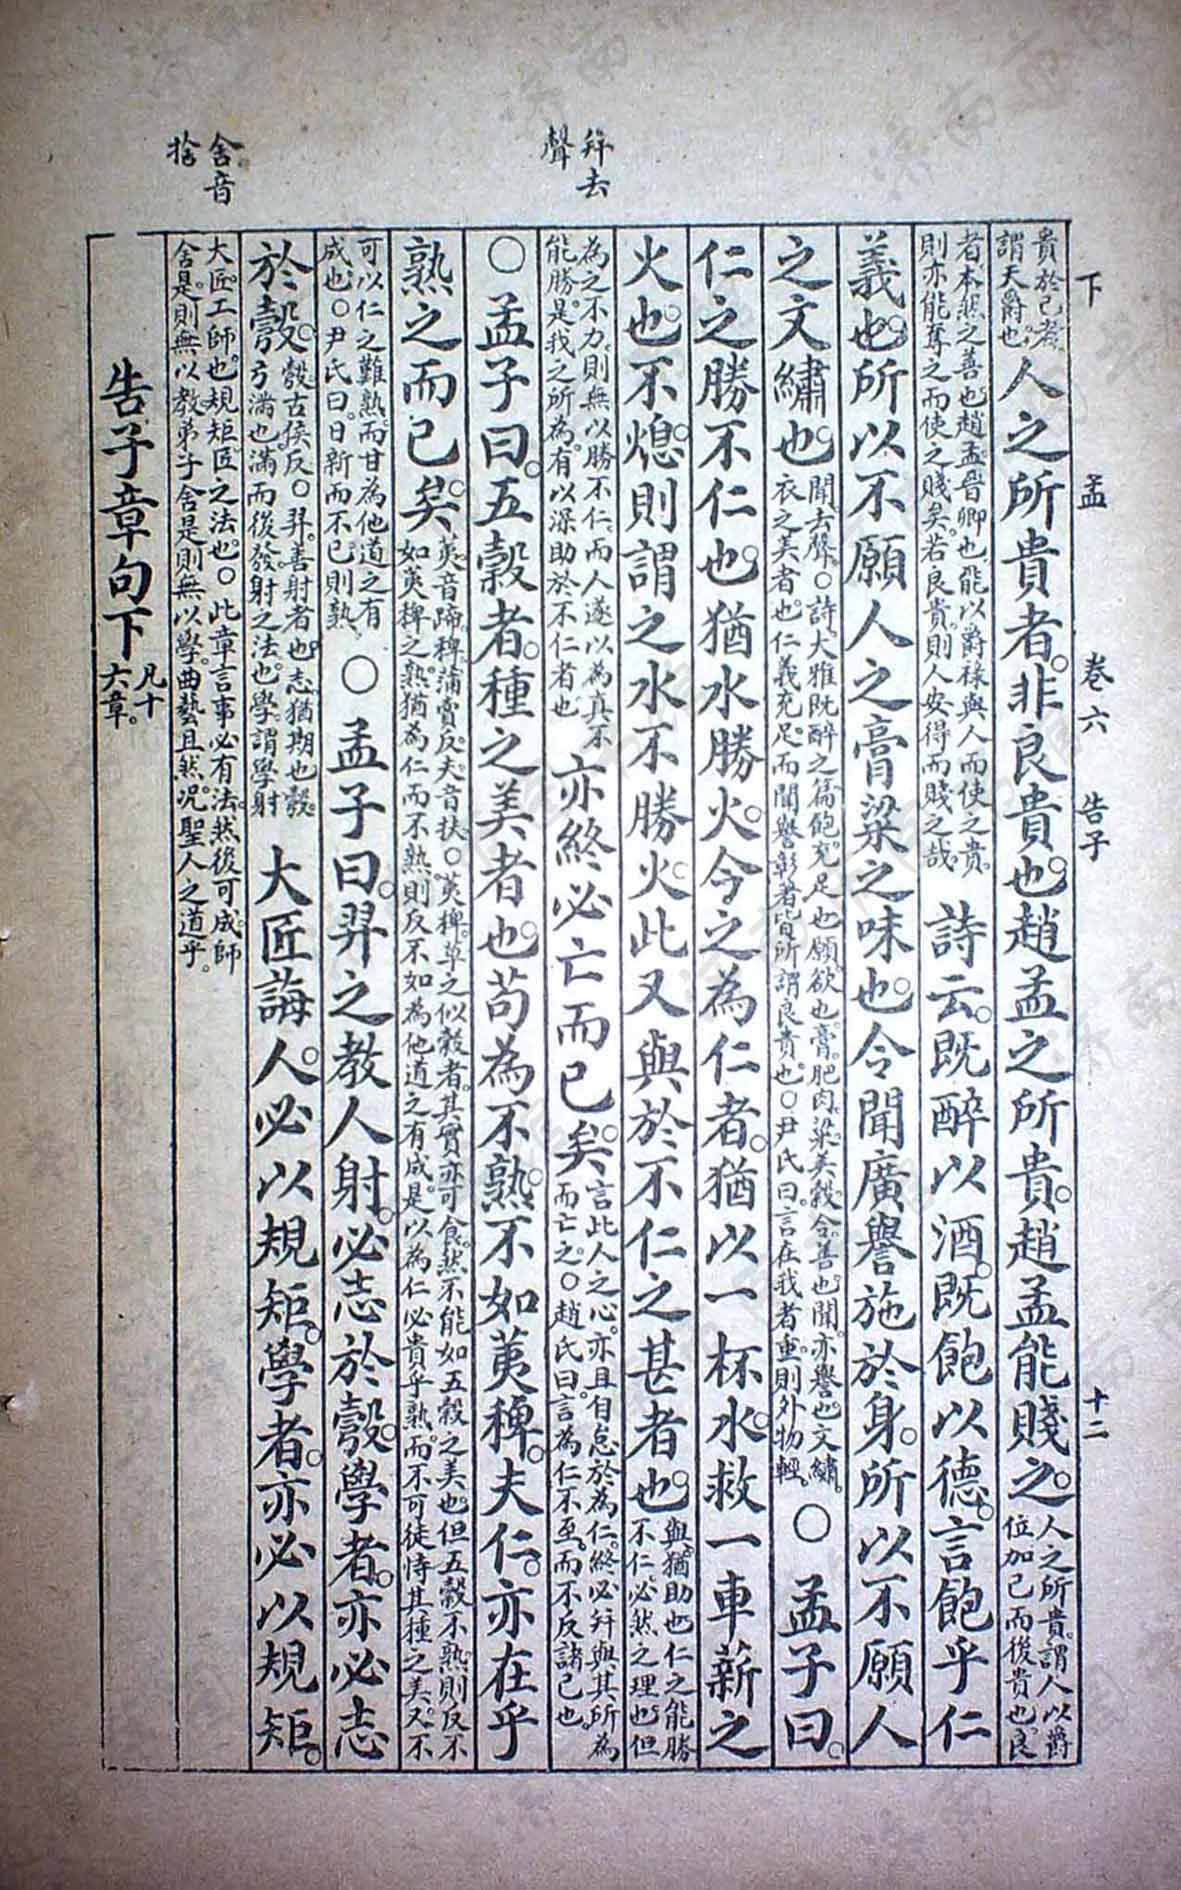 下 孟 卷六 告子 十二
貴於己者。謂天爵也。人之所貴者。非良貴也。趙孟之所貴。趙孟能賤之。人之所貴。謂人以爵位加己而後貴也。良
者。本然之善也。趙孟。晉卿也。能以爵祿與人而使之貴。則亦能奪之而使之賤矣。若良貴。則人安得而賤之哉。詩云。既醉以酒。既飽以德。言飽乎仁
義也。所以不願人之膏粱之味也。令聞廣譽施於身。所以不願人
之文繡也。聞去聲。○詩。大雅既醉之篇。飽。充足也。願。欲也。膏。肥肉。粱。美穀。令。善也。聞。亦譽也。文繡。衣之美者也。仁義充足。而聞譽彰著。皆所謂良貴也。○尹氏曰。言在我者重。則外物輕。○孟子曰。
仁之勝不仁也。猶水勝火。今之為仁者。猶以一杯水。救一車薪之
火也。不熄。則謂之水不勝火。此又與於不仁之甚者也。與。猶助也。仁之能勝不仁。必然之理也。但
為之不力。則無以勝不仁。而人遂以為真不能勝。是我之所為。有以深助於不仁者也 亦終必亡而已矣。言此人之心。亦且自怠於為仁。終必并與其所為而亡之。○趙氏曰。言為仁不至。而不反諸己也。
并去聲
○孟子曰。五穀者。種之美者也。苟為不熟。不如荑稗。夫仁。亦在乎
熟之而已矣。荑音蹄。稗。蒲賣反。夫音扶。○荑稗。草之似穀者。其實亦可食。然不能如五穀之美也。但五穀不熟。則反不如荑稗之熟。猶為仁而不熟。則反不如為他道之有成。是以為仁必貴乎熟。而不可徒恃其種之美。又不
可以仁之難熟。而甘為他道之有成也。○尹氏曰。日新而不已則熟 ○孟子曰。羿之教人射。必志於彀。學者。亦必志
於彀。彀古侯反。○羿。善射者也。志猶期也。彀。弓滿也。滿而後發。射之法也。學。謂學射 大匠誨人。必以規矩。學者。亦必以規矩。
大匠。工師也。規矩。匠之法也。○此章言事必有法。然後可成。師舍是。則無以教弟子。舍是則無以學。曲藝且然。況聖人之道乎。
舍音捨
告子章句下凡十六章。